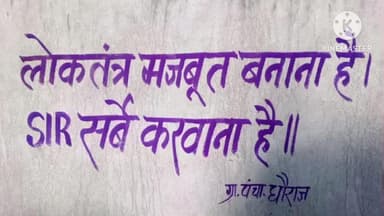 KINEMASTER
लोकतंत्र मजबूत बनाना है।
SIR सर्बे करवाना है॥
ग्रा. पंचा. घौराज